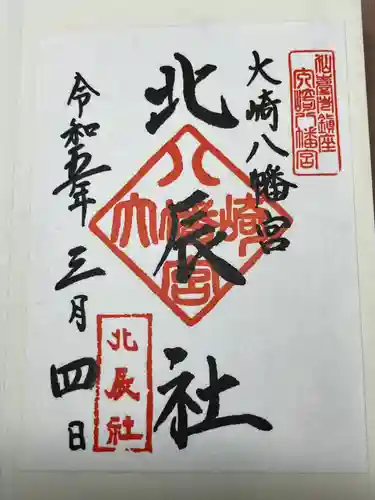 仙臺城鎮座
大崎八幡宮
大崎八幡宮
北辰社
八
大幡崎
宮
北辰社
令和五年三月四日